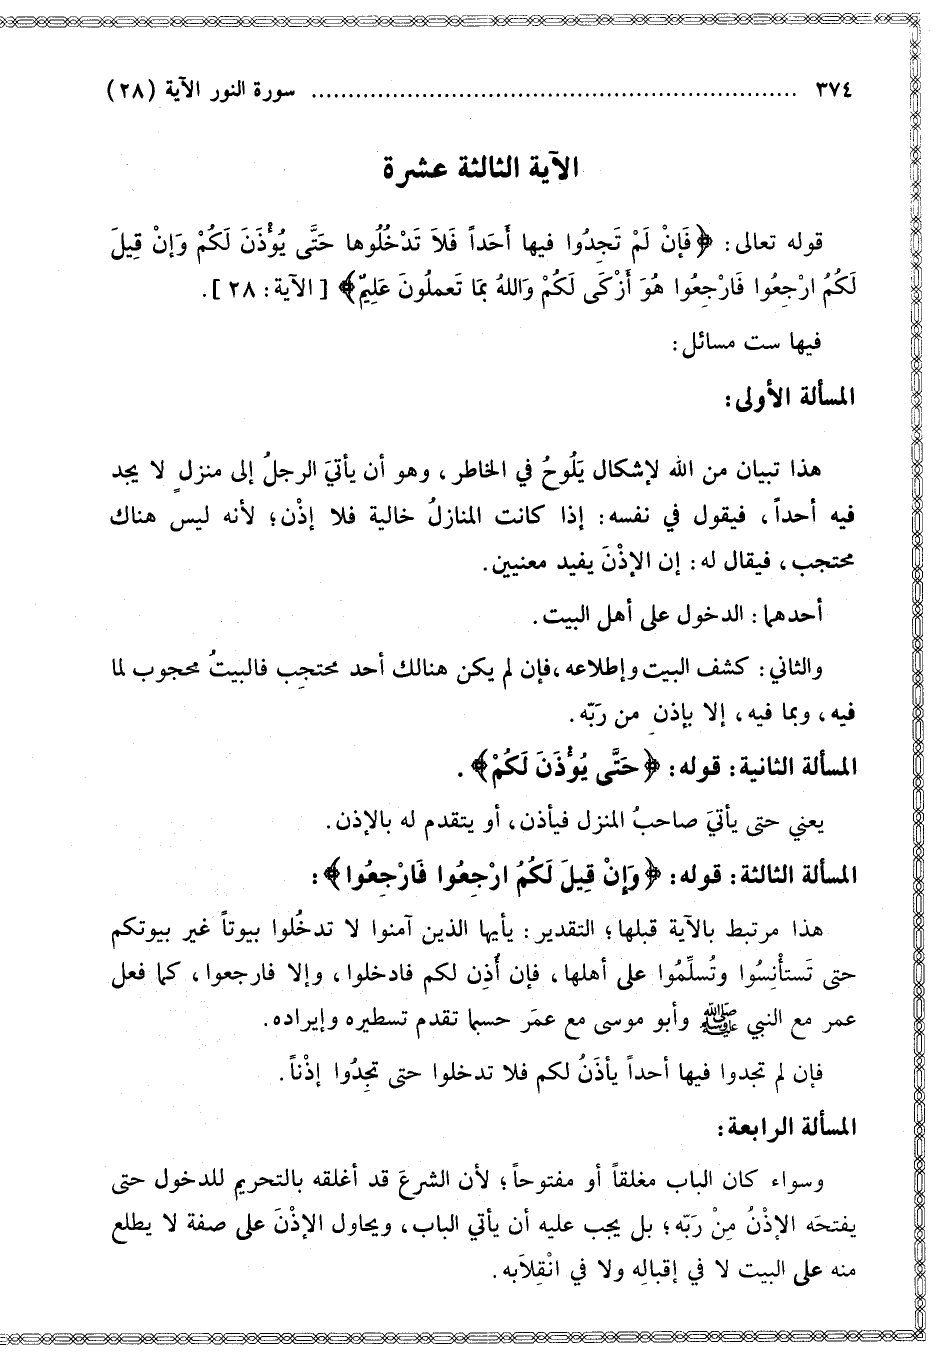 ٣٧٤ ................................................................ سورة النور الآية (٢٨)
الآية الثالثة عشرة
قوله تعالى: ﴿فَإِنْ لَمْ تَجِدُوا فيها أَحَداً فَلاَ تَدْخُلُوها حَتَّى يُؤْذَنَ لَكُمْ وَإِنْ قِيلَ
لَكُمُ ارْجِعُوا فَارْجِعُوا هُوَ أَزْكَى لَكُمْ وَاللهُ بِمَا تَعملُونَ عَلِيمٌ﴾ [الآية: ٢٨].
فيها ست مسائل:
المسألة الأولى:
هذا تبيان من الله لإشكال يَلُوحُ في الخاطر، وهو أن يأتيَ الرجلُ إلى منزلٍ لا يجد
فيه أحداً، فيقول في نفسه: إذا كانت المنازلُ خالية فلا إذْن؛ لأنه ليس هناك
محتجب، فيقال له: إن الإذْنَ يفيد معنيين.
أحدهما: الدخول على أهل البيت.
والثاني: كشف البيت وإطلاعه، فإن لم يكن هنالك أحد محتجِب فالبيتُ محجوب لما
فيه، وبما فيه، إلا بإذنِ من رَبّه.
المسألة الثانية: قوله: ﴿حَتَّى يُؤْذَنَ لَكُمْ﴾.
يعني حتى يأتيَ صاحبُ المنزل فيأذن، أو يتقدم له بالإذن.
المسألة الثالثة: قوله: ﴿وَإِنْ قِيلَ لَكُمُ ارْجِعُوا فَارْجِعُوا﴾:
هذا مرتبط بالآية قبلها؛ التقدير: يأيها الذين آمنوا لا تدخُلوا بيوتاً غير بيوتكم
حتى تَستأْنِسُوا وتُسلِّمُوا على أهلها، فإن أُذِن لكم فادخلوا، وإلا فارجعوا، كما فعل
عمر مع النبي ﷺ وأبو موسى مع عمَر حسبما تقدم تسطيره وإيراده.
فإن لم تجدوا فيها أحداً يأذَنُ لكم فلا تدخلوا حتى تجِدُوا إذْناً.
المسألة الرابعة:
وسواء كان الباب مغلقاً أو مفتوحاً؛ لأن الشرعَ قد أغلقه بالتحريم للدخول حتى
يفتحَه الإذْنُ مِنْ رَبّه؛ بل يجب عليه أن يأتي الباب، ويحاول الإذْنَ على صفة لا يطلع
منه على البيت لا في إقبالِه ولا في انْقِلاَبه.